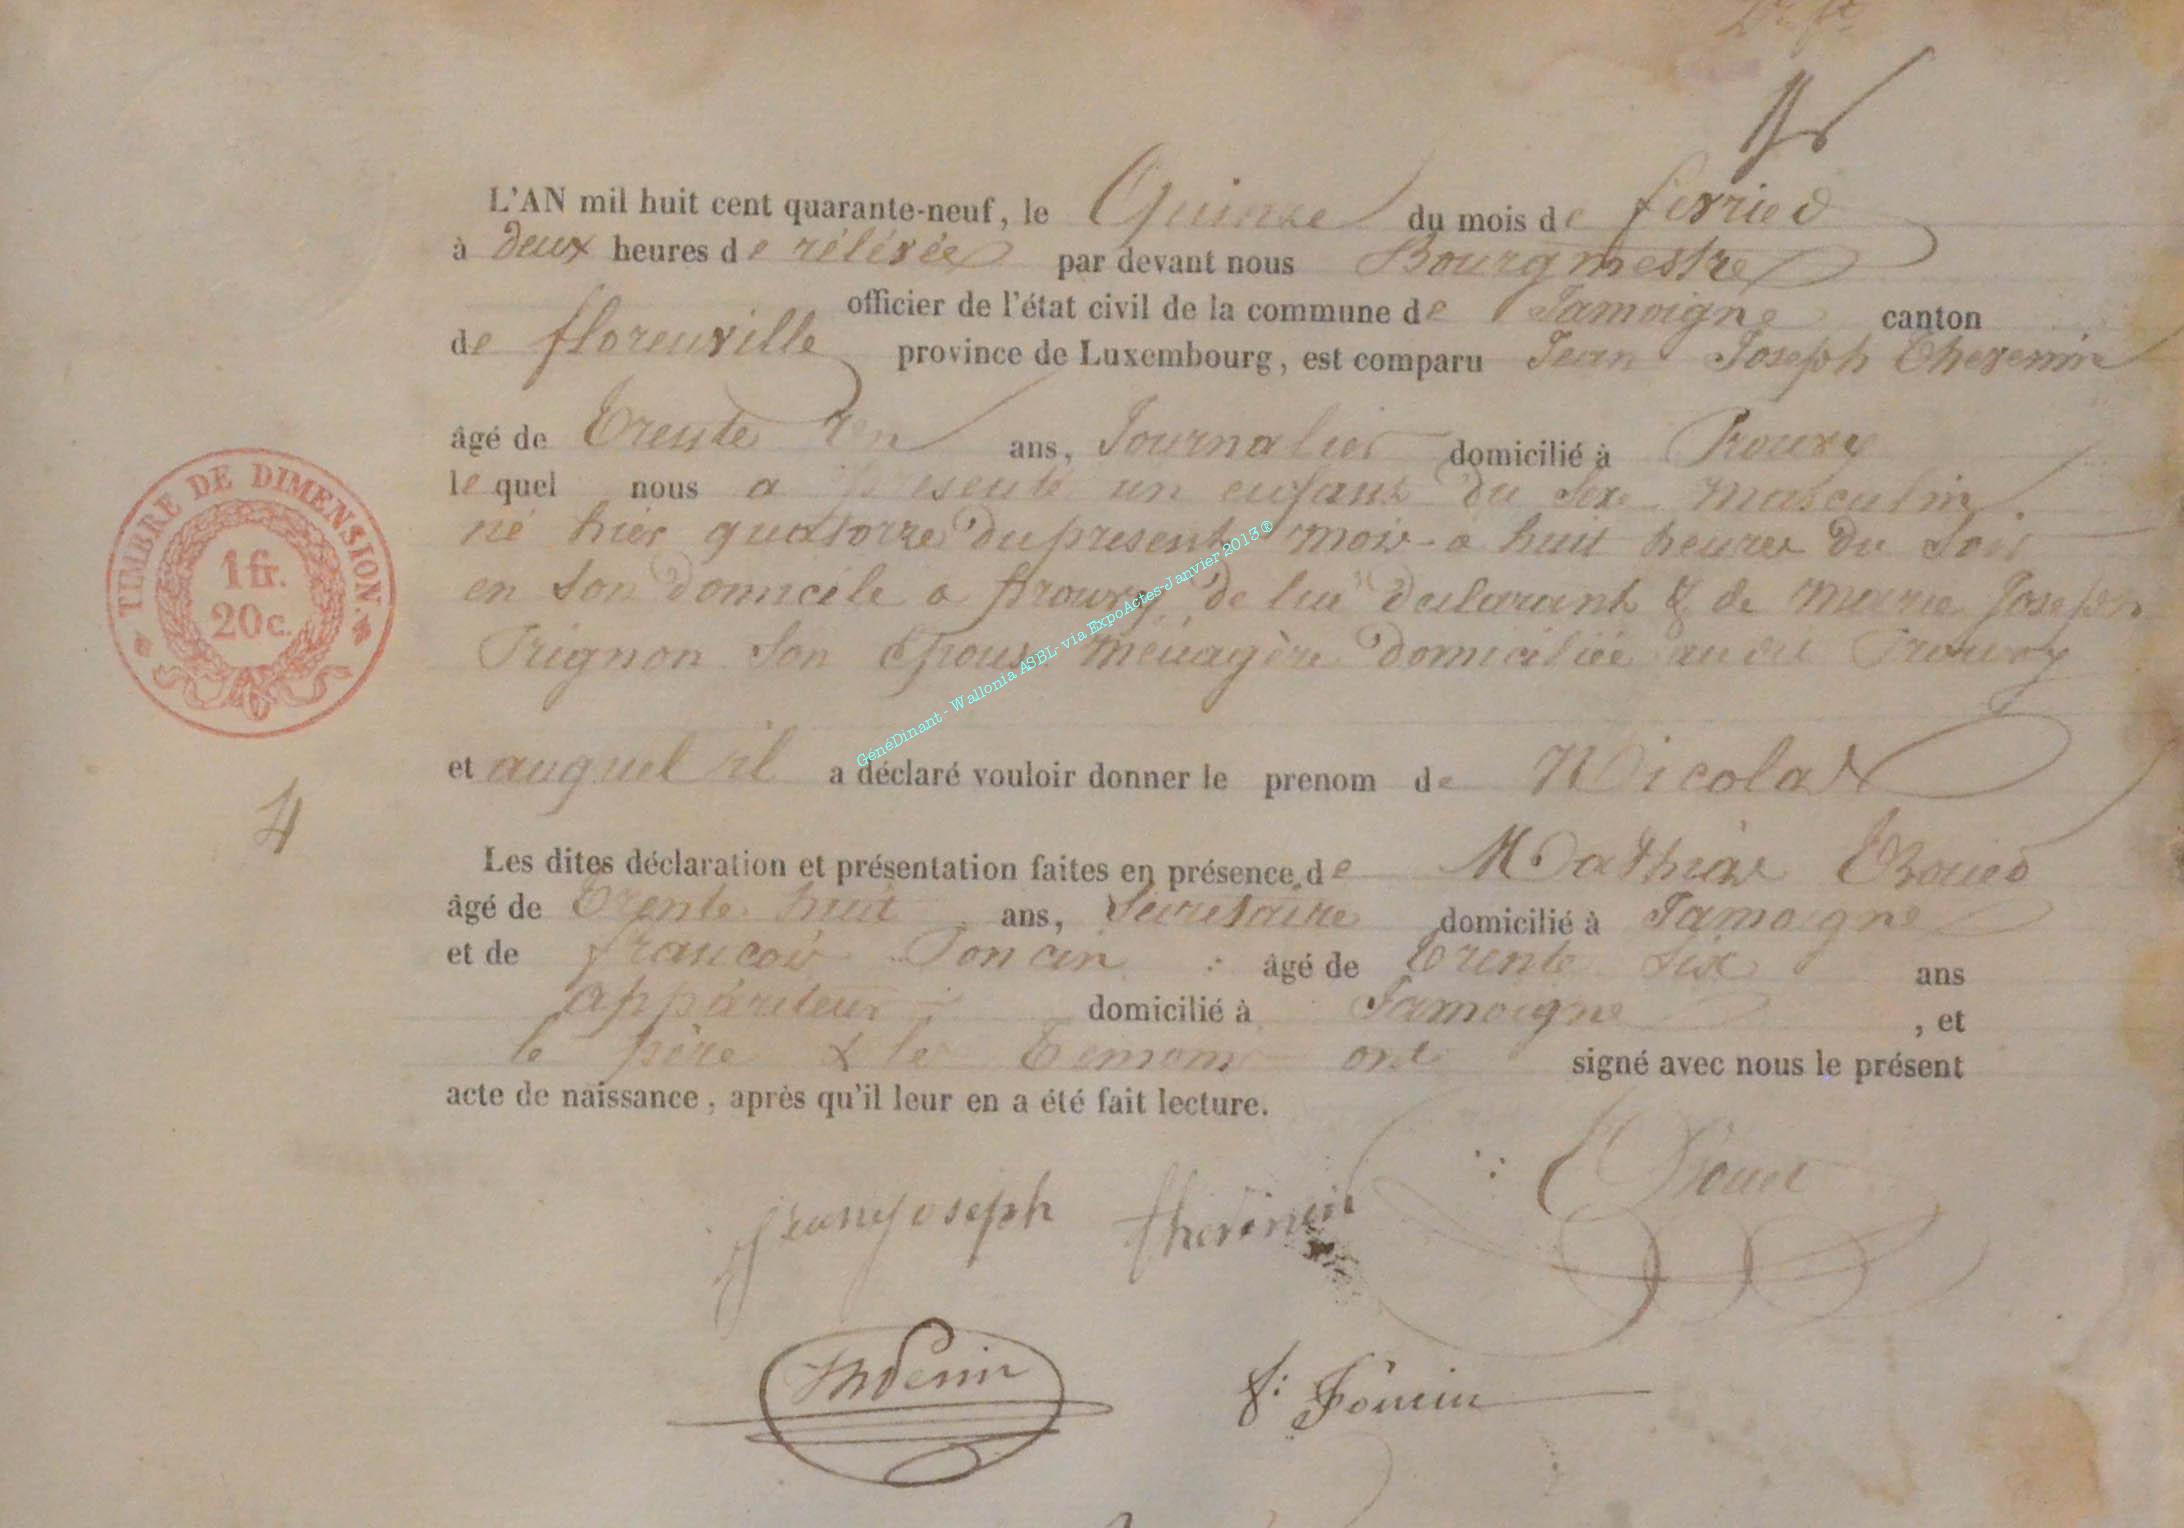 L'AN mil huit cent quarante-neuf, le Quinze du mois de fevrier
à deux heures de rélévée par devant nous Bourgmestre
officier de l'état civil de la commune de Jamoigne canton
de florenville province de Luxembourg, est comparu Jean Joseph Thevenin
âgé de trente ans, Journalier domicilié à Prouvy
lequel nous a présenté un enfant du sexe masculin
né hier quatorze du présent mois à huit heures du soir
en son domicile a prouvy de lui declarant & de marie Joseph
Trignon son épouse ménagère domiciliée Prouvy
TIMBRE DE DIMENSION.
1 fr.
20 c.
et auquel il a déclaré vouloir donner le prenom de Nicolas
4
Les dites déclaration et présentation faites en présence de Mathias
âgé de trente huit ans, Secretaire domicilié à Jamoigne
et de francois Poncin âgé de trente six ans
appariteur domicilié à Jamoigne, et
le père & les temoins ont signé avec nous le présent
acte de naissance, après qu'il leur en a été fait lecture.
jean joseph thevenin
GénéDinant - Wallonia ASBL- via ExpoActes-Janvier 2013®